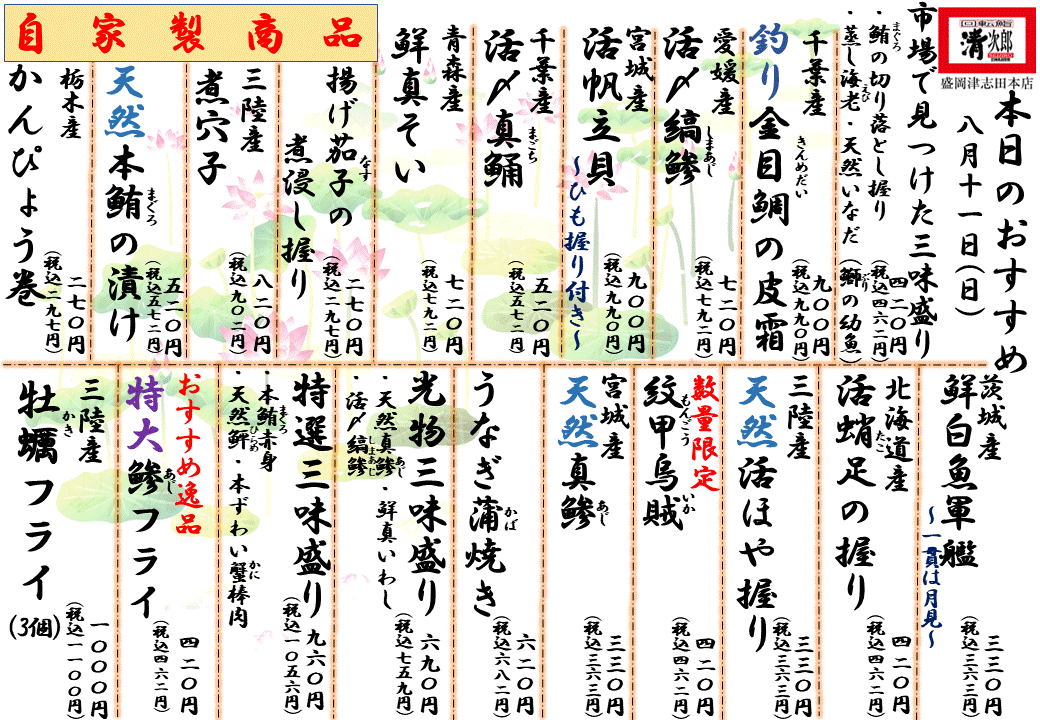 回転鮨
清次郎
盛岡津志田本店
本日のおすすめ
八月十一日(日)
市場で見つけた三味盛り
・鮪の切り落とし握り
まぐろ
・蒸し海老・天然いなだ(鰤の幼魚)
えび
ぶり
四二〇円
(税込四六二円)
千葉産
釣り金目鯛の皮霜
きんめだい
九〇〇円
(税込九九〇円)
愛媛産
活〆縞鯵
しまあじ
七二〇円
(税込七九二円)
宮城産
活帆立貝
~ひも握り付き~
九〇〇円
(税込九九〇円)
千葉産
活〆真鯒
まごち
五二〇円
(税込五七二円)
青森産
鮮真そい
七二〇円
(税込七九二円)
自家製商品
揚げ茄子の
なす
煮浸し握り
二七〇円
(税込二九七円)
三陸産
煮穴子
八二〇円
(税込九〇二円)
天然本鮪の漬け
まぐろ
五二〇円
(税込五七二円)
栃木産
かんぴょう巻
二七〇円
(税込二九七円)
茨城産
鮮白魚軍艦
~一貫は月見~
三三〇円
(税込三六三円)
北海道産
活蛸足の握り
たこ
四二〇円
(税込四六二円)
三陸産
天然活ほや握り
三三〇円
(税込三六三円)
数量限定
紋甲烏賊
もんごう
いか
四二〇円
(税込四六二円)
宮城産
天然真鯵
あじ
三三〇円
(税込三六三円)
うなぎ蒲焼き
かば
六二〇円
(税込六八二円)
光物三味盛り
・天然真鯵・鮮真いわし
あじ
・活〆縞鯵
しまあじ
六九〇円
(税込七五九円)
特選三味盛り
・本鮪赤身
まぐろ
・天然鮃・本ずわい蟹棒肉
ひらめ
かに
九六〇円
(税込一〇五六円)
おすすめ逸品
特大鯵フライ
あじ
四二〇円
(税込四六二円)
三陸産
牡蠣フライ(3個)
かき
一〇〇〇円
(税込一一〇〇円)